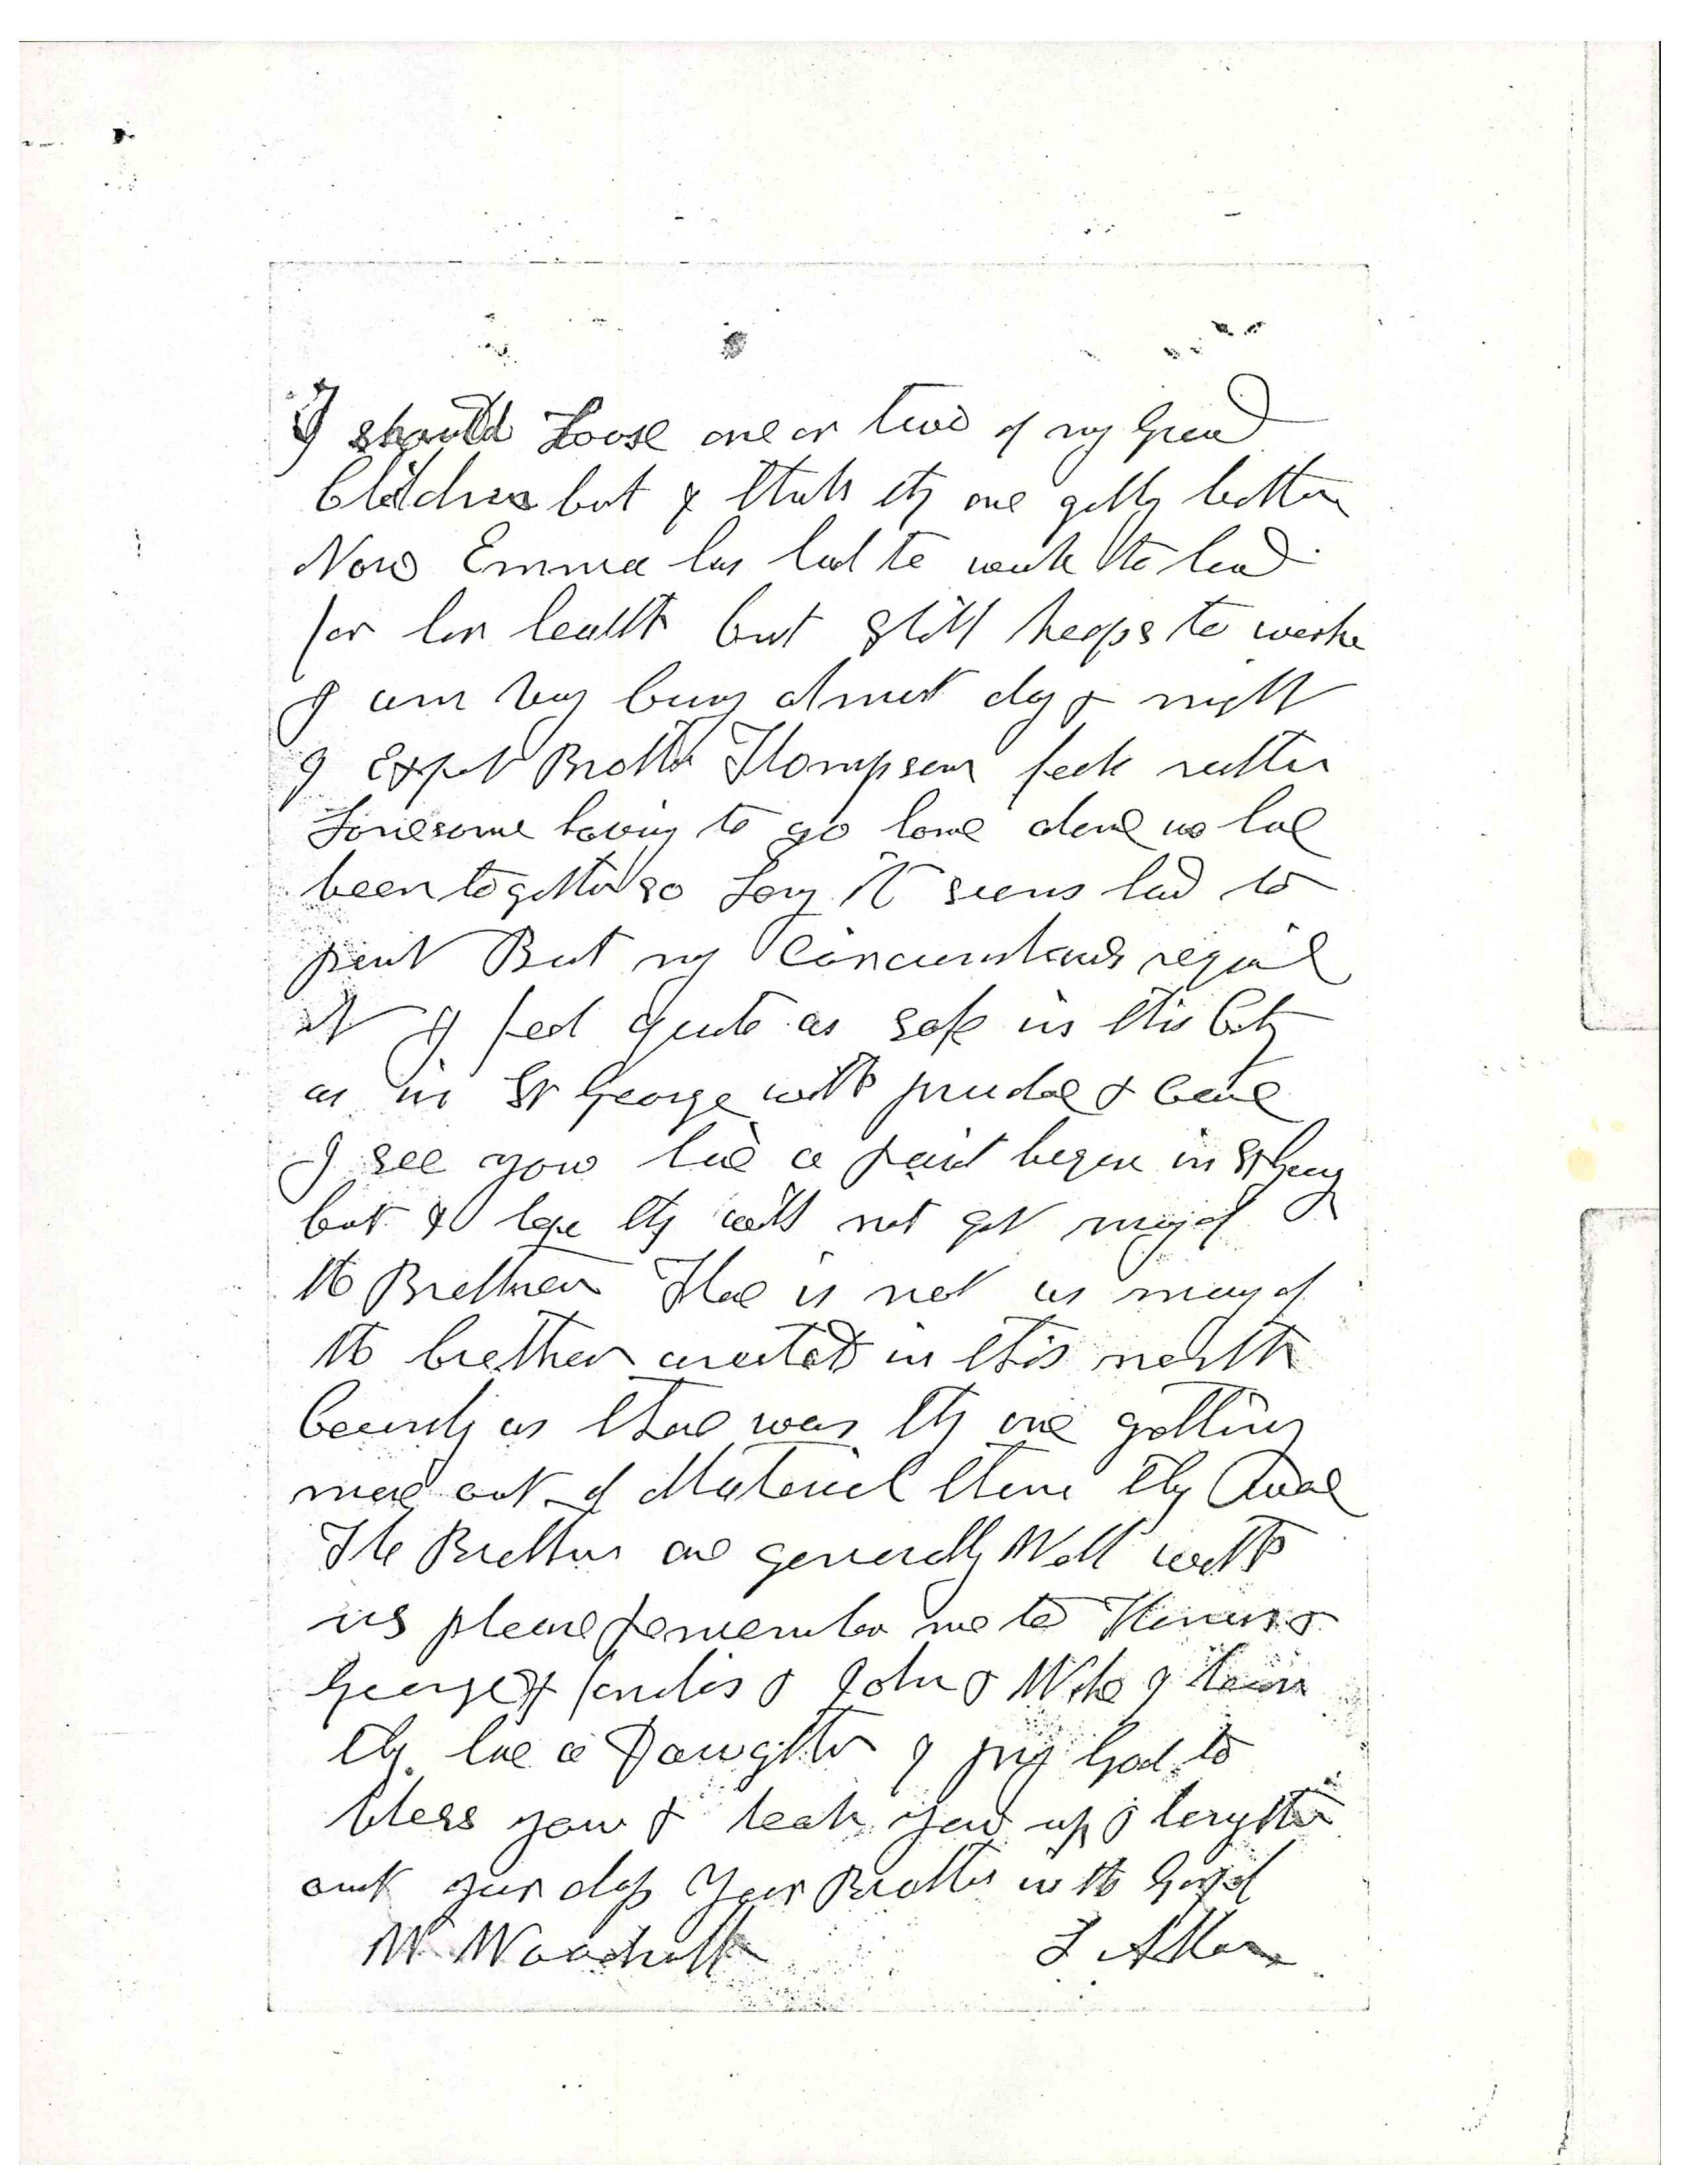 I should Loose one or two of my Grand
Children but I think they are getting better
Now Emma has had to work to hard
for her health but still keeps to work
I am very busy almost day & night
I Expect Brother Thompson feels rather
Lonesome having to go home alone we have
been together so Long it seems hard to
part But my Circumstances require
it I feel quite as safe in this City
as in St George with prudence & care
I see you have a raid begun in St George
but I hope they will not get many of
the Brethren There is not as many of
the brethren arrested in this north
County as there was they are getting
more out of Material then they Are
The Brethren are generally Well with
us please remember me to Thomas &
George & families & John & Wife I learn
they have a Daughter I pray God to
bless you & heal you up & lengthen
out your days Your Brother in the Gospel
W Woodruff L Allan